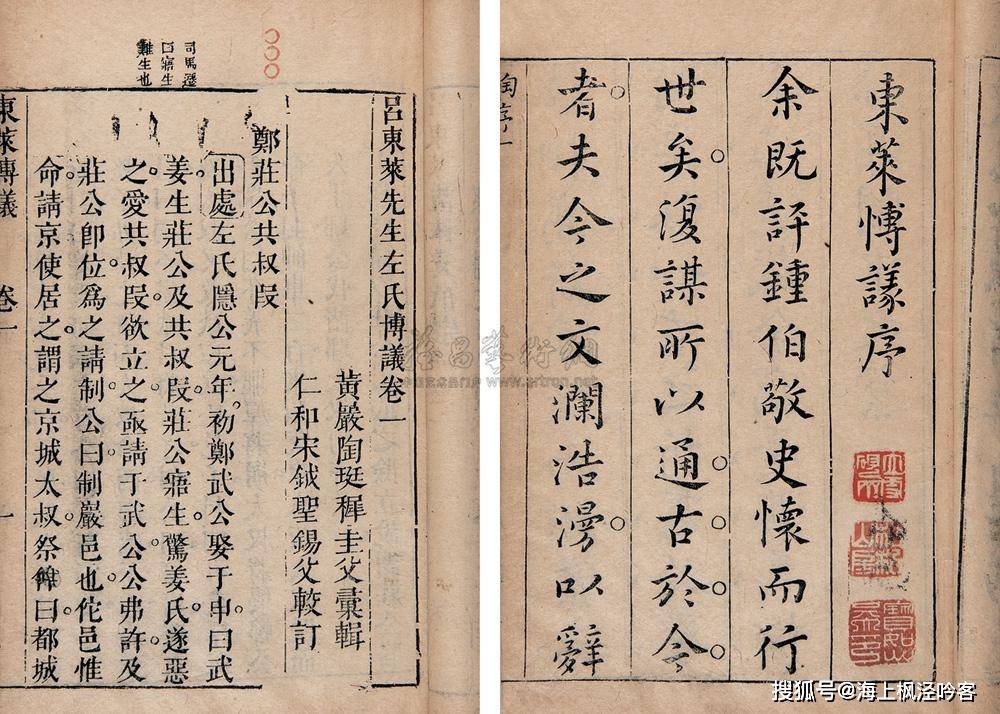 東萊愽議序
余既評鍾伯敬史懷而行
世矣復謀所以通古於今
者夫今之文瀾浩漫以辭
陶序 一
呂東萊先生左氏博議卷一
黃巖陶珽穉圭父彙輯
仁和宋鉞聖錫父較訂
司馬遷
曰寤生
難生也
鄭莊公共叔段
出處左氏隱公元年初鄭武公娶于申曰武
姜生莊公及共叔段莊公寤生驚姜氏遂惡
之愛共叔段欲立之亟請于武公公弗許及
莊公卽位爲之請制公曰制巖邑也佗邑惟
命請京使居之謂之京城太叔祭曰都城
東萊博議 卷一 一
雅昌藝術網
www.artron.net
搜狐号@海上枫泾吟客